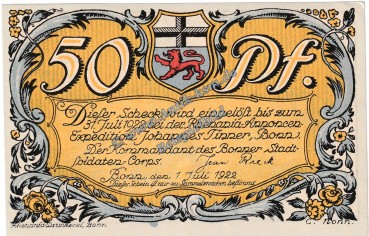 50 Pf.
Dieser Scheck wird eingelöst bis zum
31. Juli 1922 bei der Rhenania Annoncen
Expedition Johannes Tinner, Bonn.
Der Kommandant des Bonner Stadt-
soldaten-Corps. Jean
Bonn, den 1. Juli 1922
Dieser Schein ist nur zu Sammelzwecken bestimmt.
Rhenania-Druckerei, Bonn.
C. Nonn.